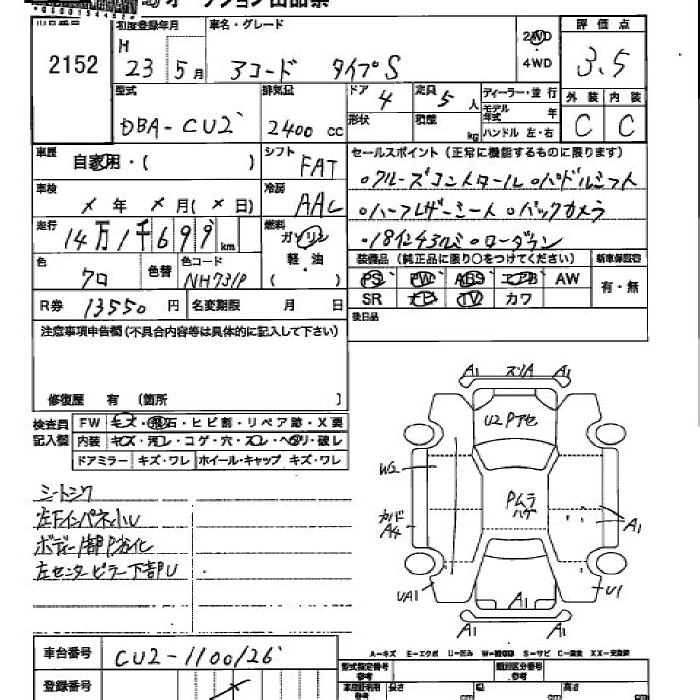 オークション出品票
出品番号 2152
初度登録年月 H 23 5月
車名・グレード アコード タイプS
2WD ・ 4WD
評価点 3.5
外装 C 内装 C
型式 DBA-CU2
排気量 2400 CC
ドア 4 定員 5人
形状 積載 kg
ディーラー・並行
モデル年式 年
ハンドル 左・右
車歴 自家用・( )
シフト FAT
車検 × 年 × 月(× 日)
冷房 AAC
走行 14万1千699km
燃料 ガソリン 軽・油 ( )
色 クロ 色替 色コード NH731P
R券 13550円 名変期限 月 日
セールスポイント(正常に機能するものに限ります)
○クルーズコントロール ○パドルシフト
○ハーフレザーシート ○バックカメラ
○18インチアルミ ○ローダウン
装備品(純正品に限り○をつけてください) 新車保証書
PS PW ABS エアB AW 有・無
SR ナビ TV カワ
後日品
注意事項申告欄(不具合内容等は具体的に記入して下さい)
修復歴 有 (箇所 )
検査員記入欄
FW キズ・飛石・ヒビ割・リペア跡・X要
内装 キズ・汚レ・コゲ・穴・スレ・ヘタリ・破レ
ドアミラー キズ・ワレ ホイール・キャップ キズ・ワレ
シートシワ
左Fインパネ小U
左センターピラー下部U
A1 A1
U2 Pアセ
W2
Pムラ
ハゲ
カド A4
A1
UA1 U1
A1
A1 A1
A-キズ E-エクボ U-凹み W-補修跡 S-サビ C-腐食 XX-交換済
車台番号 CU2-1100126
登録番号
型式指定番号 参考
類別区分番号 参考
長さ cm 幅 cm 高さ cm